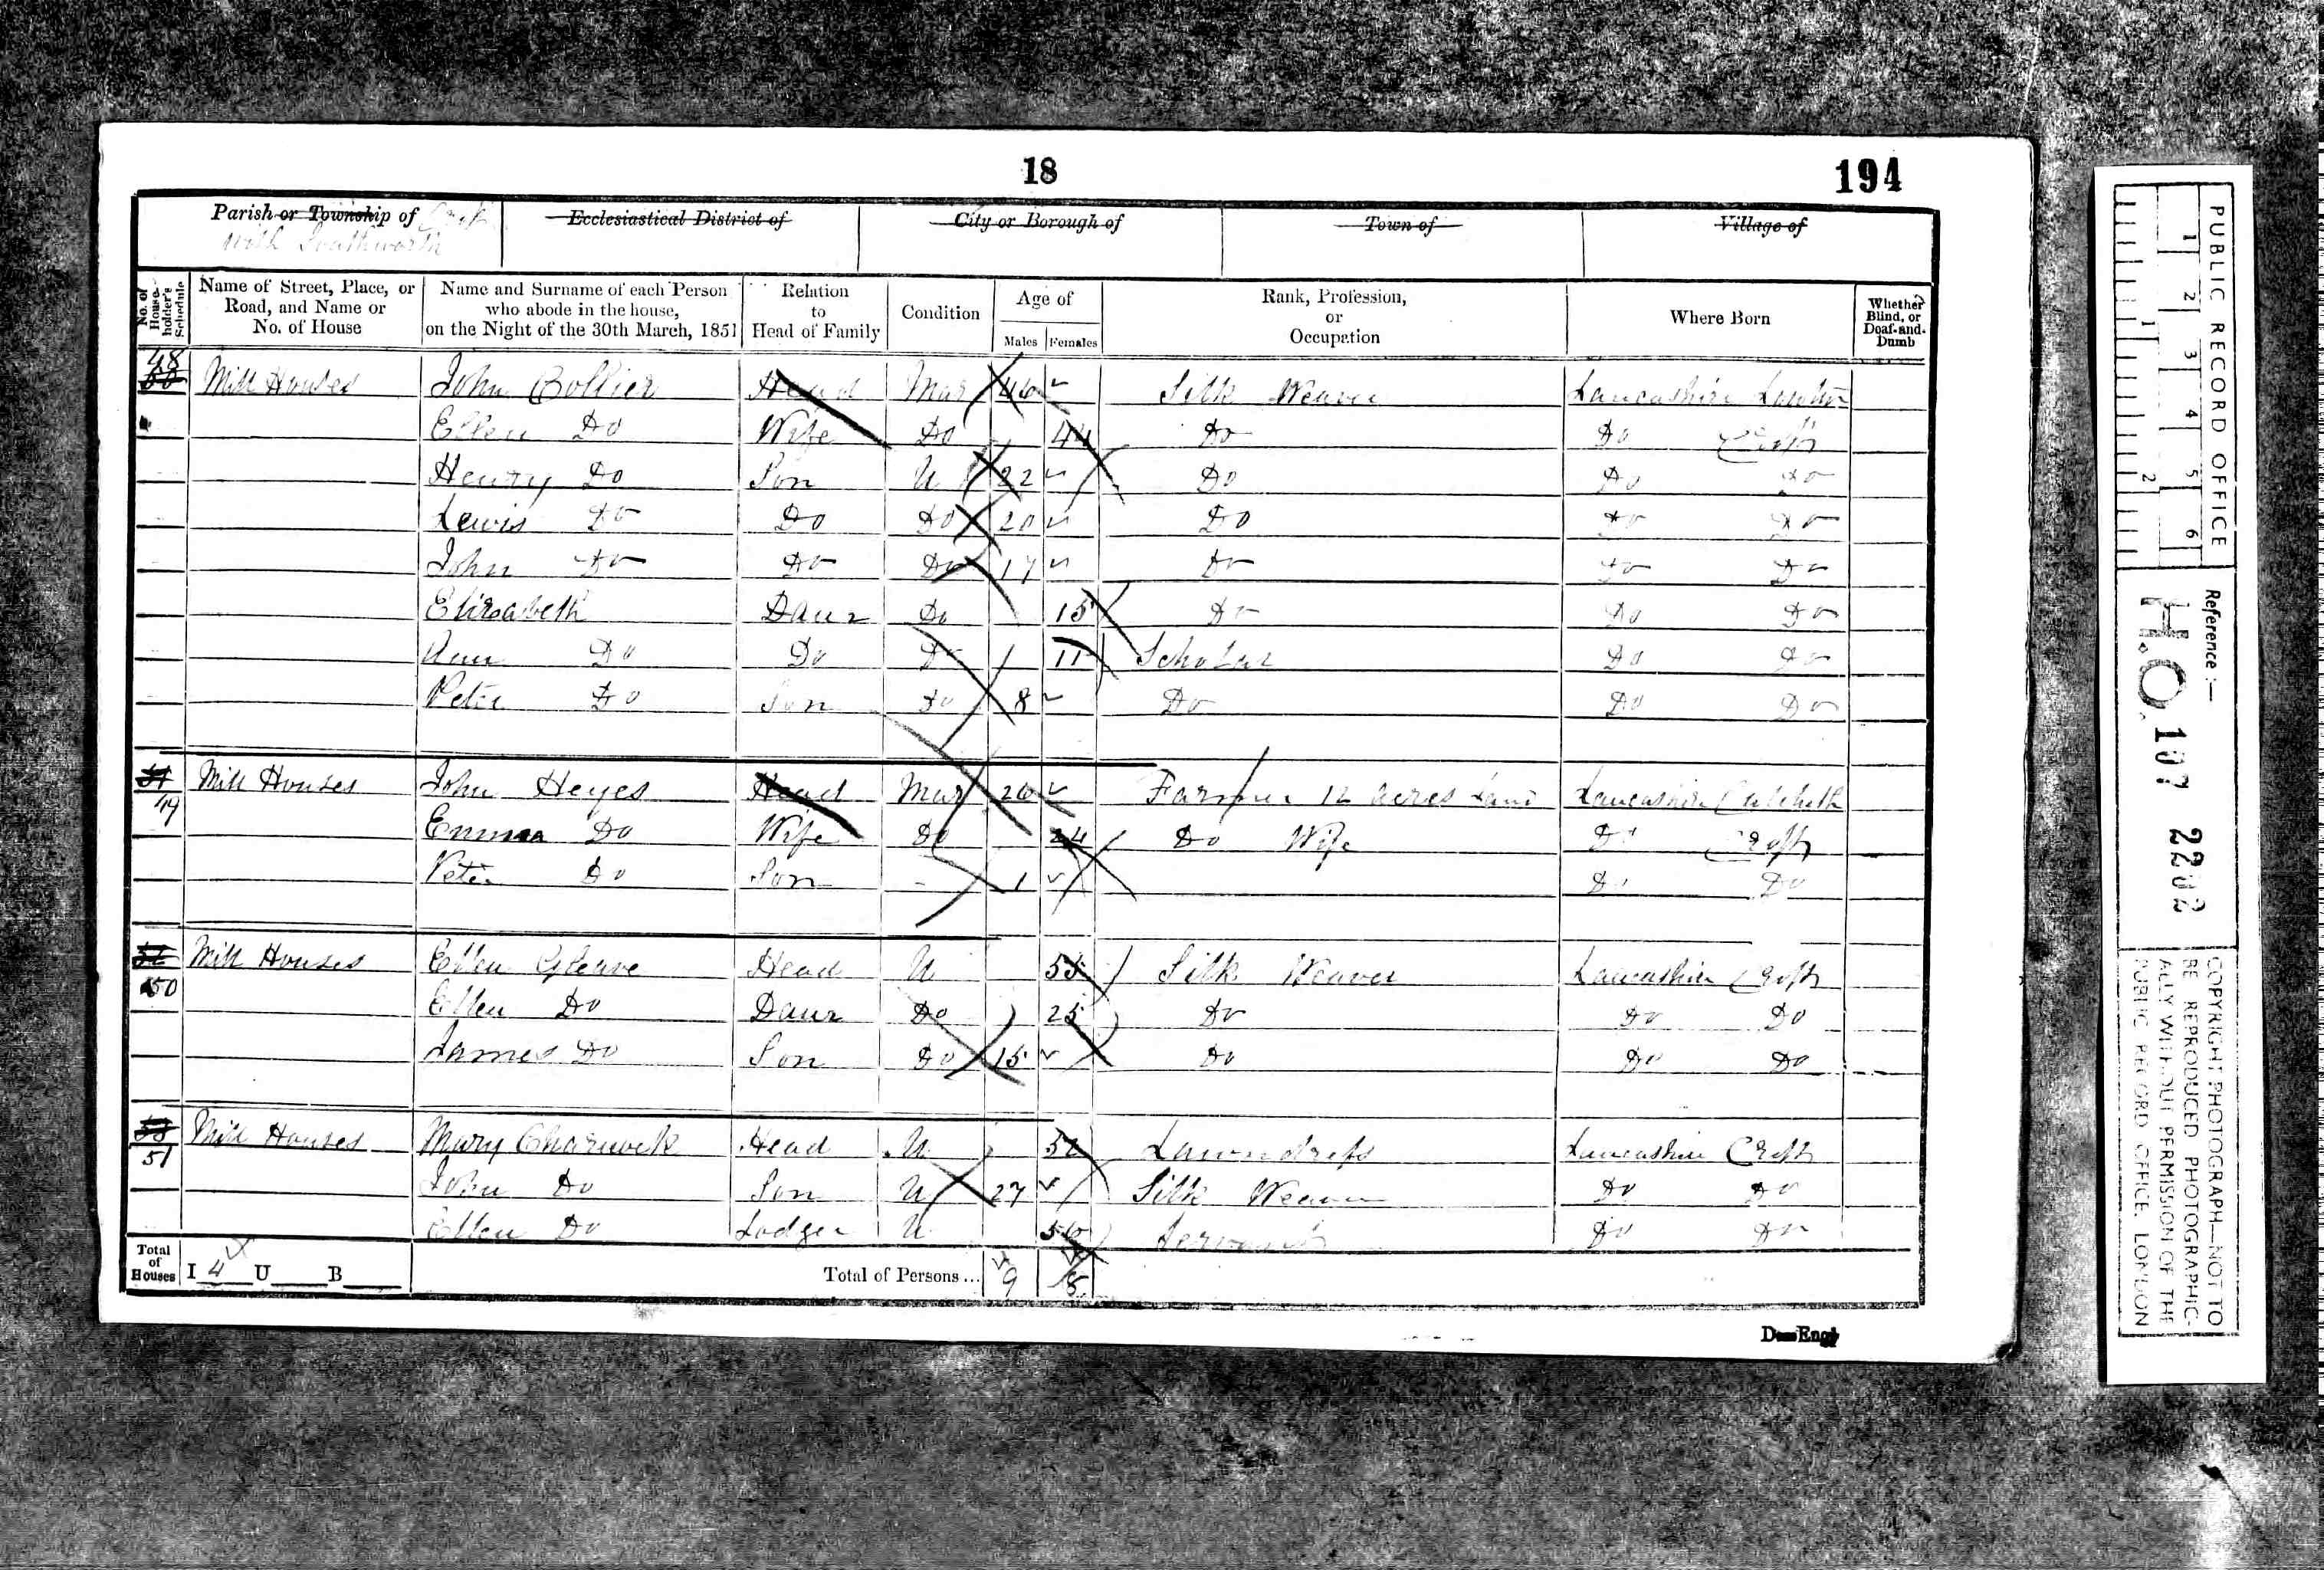 18
194
Parish or Township of Croft
with Southworth
Ecclesiastical District of
City or Borough of
Town of
Village of
No. of House-holder's Schedule
Name of Street, Place, or Road, and Name or No. of House
Name and Surname of each Person who abode in the house, on the Night of the 30th March, 1851
Relation to Head of Family
Condition
Age of
Males Females
Rank, Profession, or Occupation
Where Born
Whether Blind, or Deaf-and-Dumb
48 50 Mill Houses John Collier Head Mar 46 Silk Weaver Lancashire Lowton
Ellen Do Wife Do 44 Do Do Croft
Henry Do Son U 22 Do Do Do
Lewis Do Do Do 20 Do Do Do
John Do Do Do 17 Do Do Do
Elizabeth Daur Do 15 Do Do Do
Ann Do Do Do 11 Scholar Do Do
Peter Do Son Do 8 Do Do Do
51 49 Mill Houses John Heyes Head Mar 26 Farmer 12 acres Land Lancashire Culcheth
Emma Do Wife Do 24 Do Wife Do Croft
Peter Do Son - 1 Do Do
52 50 Mill Houses Ellen Gleave Head U 55 Silk Weaver Lancashire Croft
Ellen Do Daur Do 25 Do Do Do
James Do Son Do 15 Do Do Do
53 51 Mill Houses Mary Charnock Head U Lawndress Lancashire Croft
John Do Son U 27 Silk Weaver Do Do
Ellen Do Lodger U 56 Servant Do Do
Total of Houses I 4 U B Total of Persons... 9 8
PUBLIC RECORD OFFICE
1 2 3 4 5 6
1 2
Reference :—
H.O. 107 2202
COPYRIGHT PHOTOGRAPH—NOT TO
BE REPRODUCED PHOTOGRAPHIC-
ALLY WITHOUT PERMISSION OF THE
PUBLIC RECORD OFFICE, LONDON